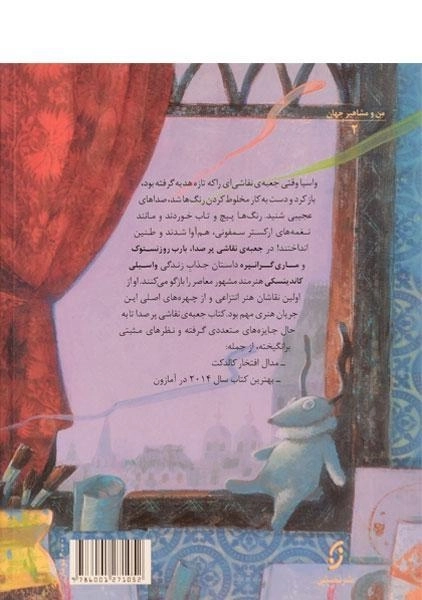 من و مشاهیر جهان
۲
واسیا وقتی جعبه‌ی نقاشی‌ای را که تازه هدیه گرفته بود،
باز کرد و دست به کار مخلوط کردن رنگ‌ها شد، صداهای
عجیبی شنید. رنگ‌ها پیچ و تاب خوردند و مانند
نغمه‌های ارکستر سمفونی، هم‌آوا شدند و طنین
انداختند! در جعبه‌ی نقاشی پر صدا، بارب روزنستوک
و ماری گرانپره داستان جذاب زندگی واسیلی
کاندینسکی هنرمند مشهور معاصر را بازگو می‌کنند. او از
اولین نقاشان هنر انتزاعی و از چهره‌های اصلی این
جریان هنری مهم بود. کتاب جعبه‌ی نقاشی پر صدا تا به
حال جایزه‌های متعددی گرفته و نظرهای مثبتی
برانگیخته، از جمله:
ـ مدال افتخار کالدکت
ـ بهترین کتاب سال ۲۰۱۴ در آمازون
9 786001 271052